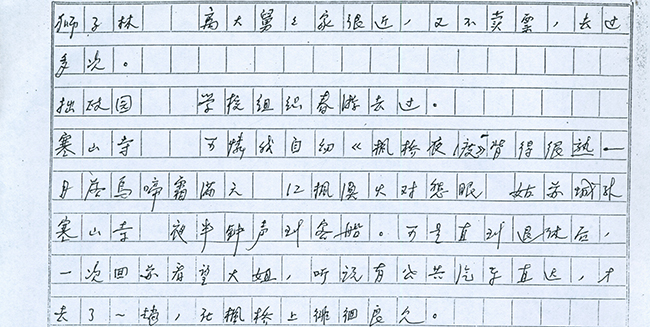 狮子林 离大舅々家很近，又不卖票，去过
多次。
拙政园 学校组织春游去过。
寒山寺 可怜我自幼《枫桥夜》背得很熟—
月落乌啼霜满天 江枫渔火对愁眠 姑苏城外
寒山寺 夜半钟声到客船。可是直到退休后，
一次回苏看望大姐，听说有公共汽车直达，才
去了一趟，在枫桥上徘徊良久。